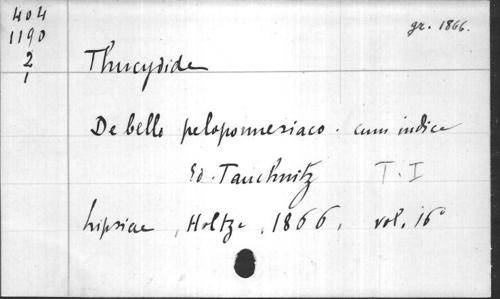 404
1190
2
1
gr. 1866.
Thucydide
De bello peloponnesiaco. cum indice
Ed. Tauchnitz T. I
Lipsiae, Holtze, 1866, vol. 16°